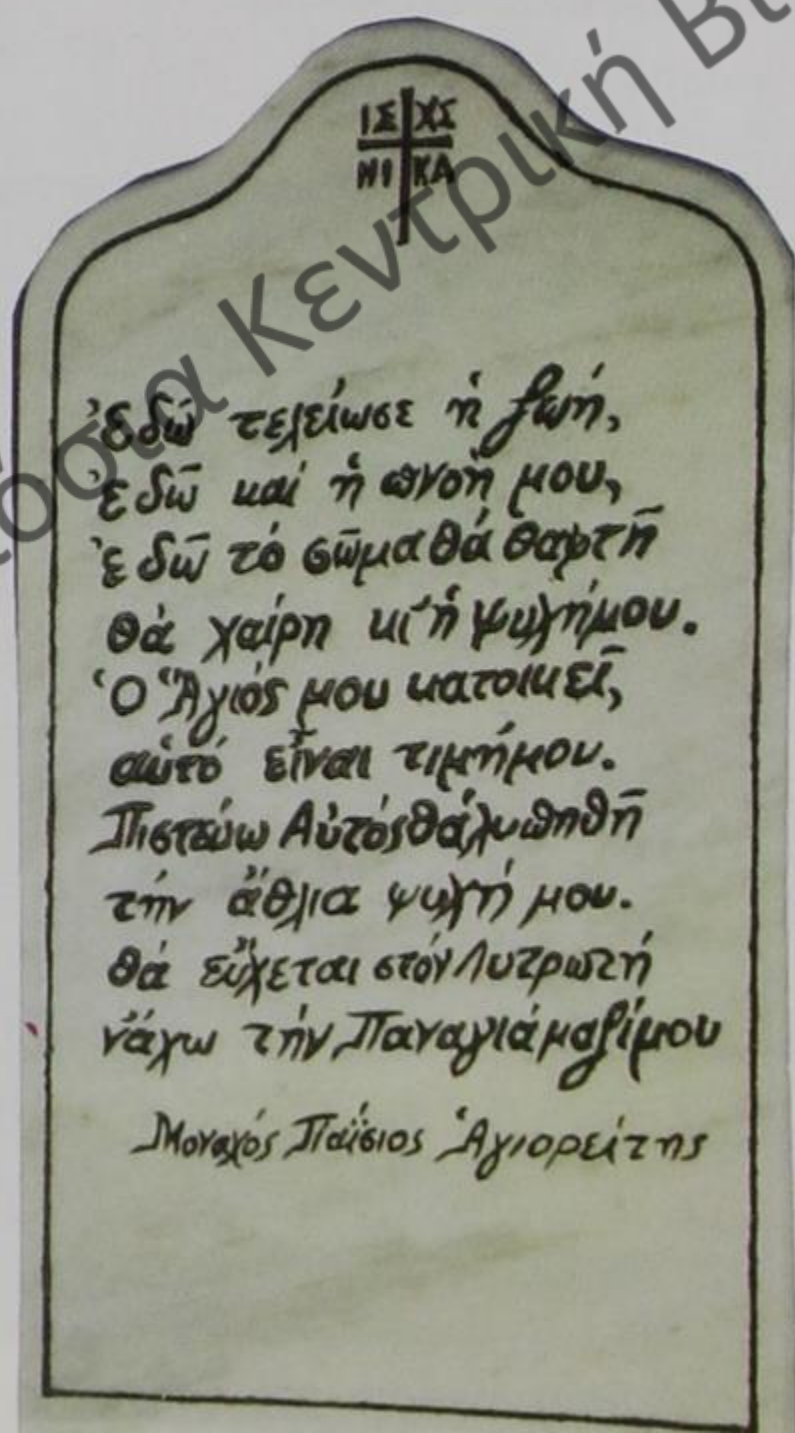 ΙΣ ΧΣ
ΝΙ ΚΑ
Ἐδῶ τελείωσε ἡ ζωή,
ἐδῶ καί ἡ πνοή μου,
ἐδῶ τό σῶμα θά θαφτῆ
θά χαίρη κι΄ ἡ ψυχή μου.
Ὁ Ἅγιός μου κατοικεῖ,
αὐτό εἶναι τιμή μου.
Πιστεύω Αὐτός θά λυπηθῆ
τήν ἄθλια ψυχή μου.
θά εὔχεται στόν Λυτρωτή
νἄχω τήν Παναγιά μαζί μου
Μοναχός Παΐσιος Ἁγιορείτης
Κεντρική